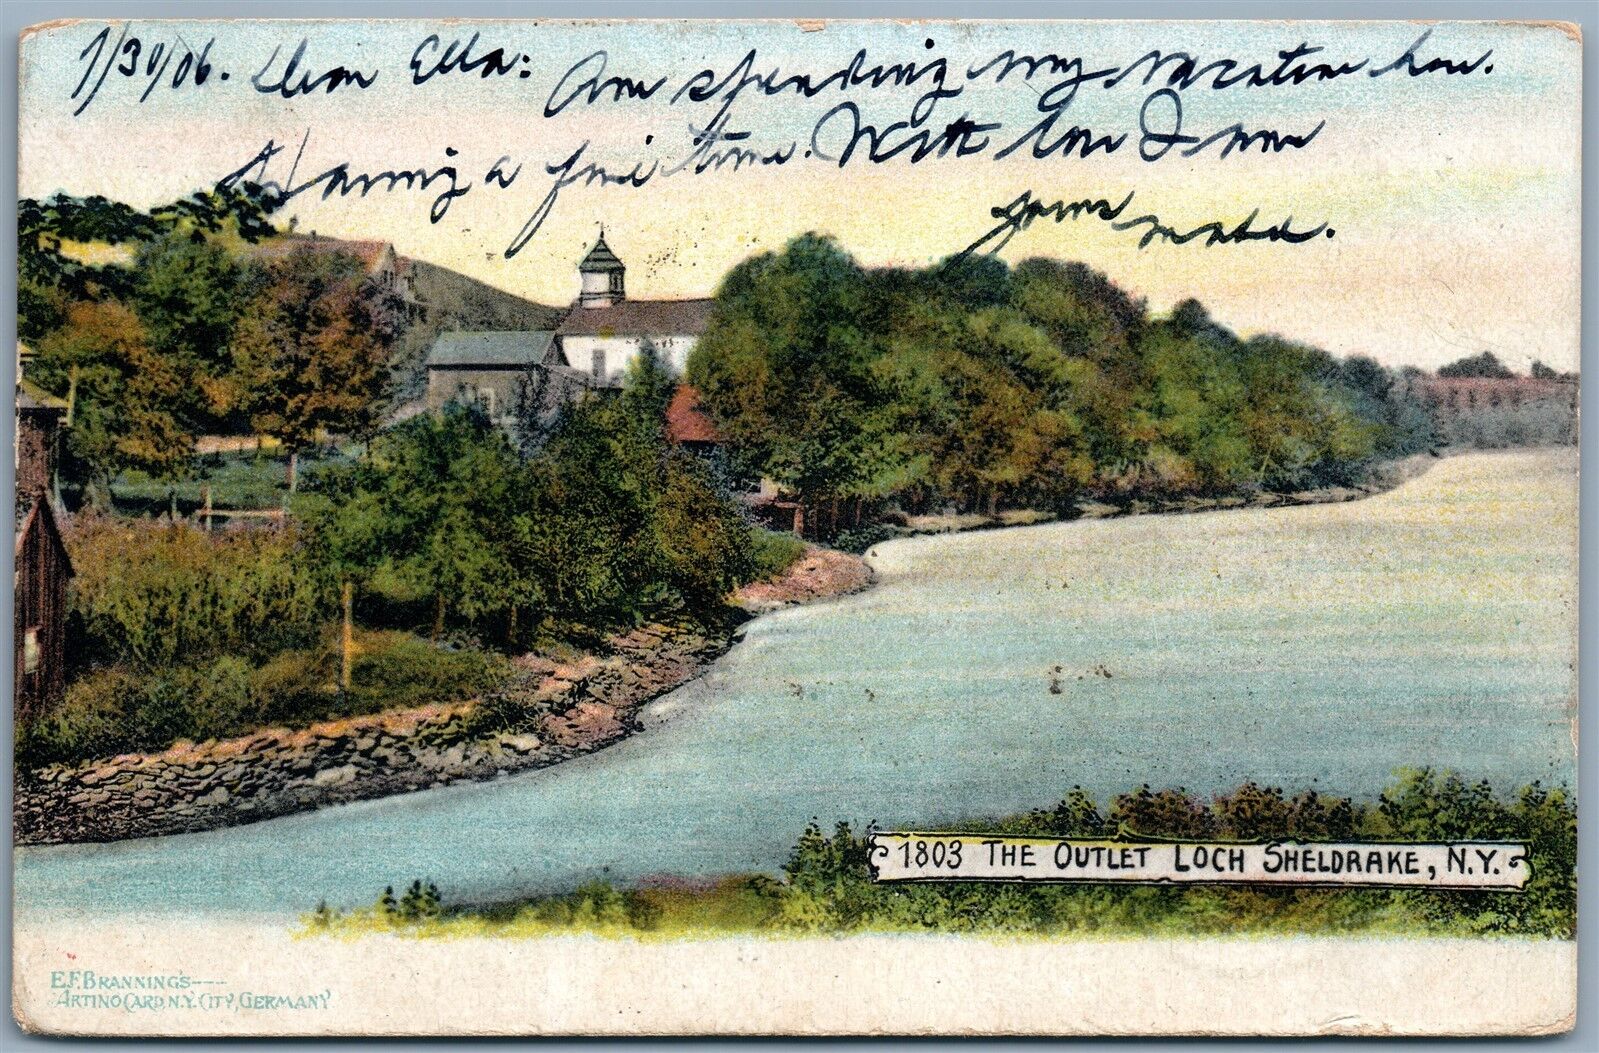 7/30/06. Dear Ella: Am spending my vacation here.
Having a fine time. With love I am
yours
1803 THE OUTLET LOCH SHELDRAKE, N.Y.
E.F. BRANNING'S----
ARTINO CARD, N.Y. CITY, GERMANY